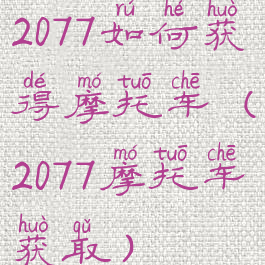 rú hé huò
2077如何获
dé mó tuō chē
得摩托车（
mó tuō chē
2077摩托车
huò qǔ
获取）